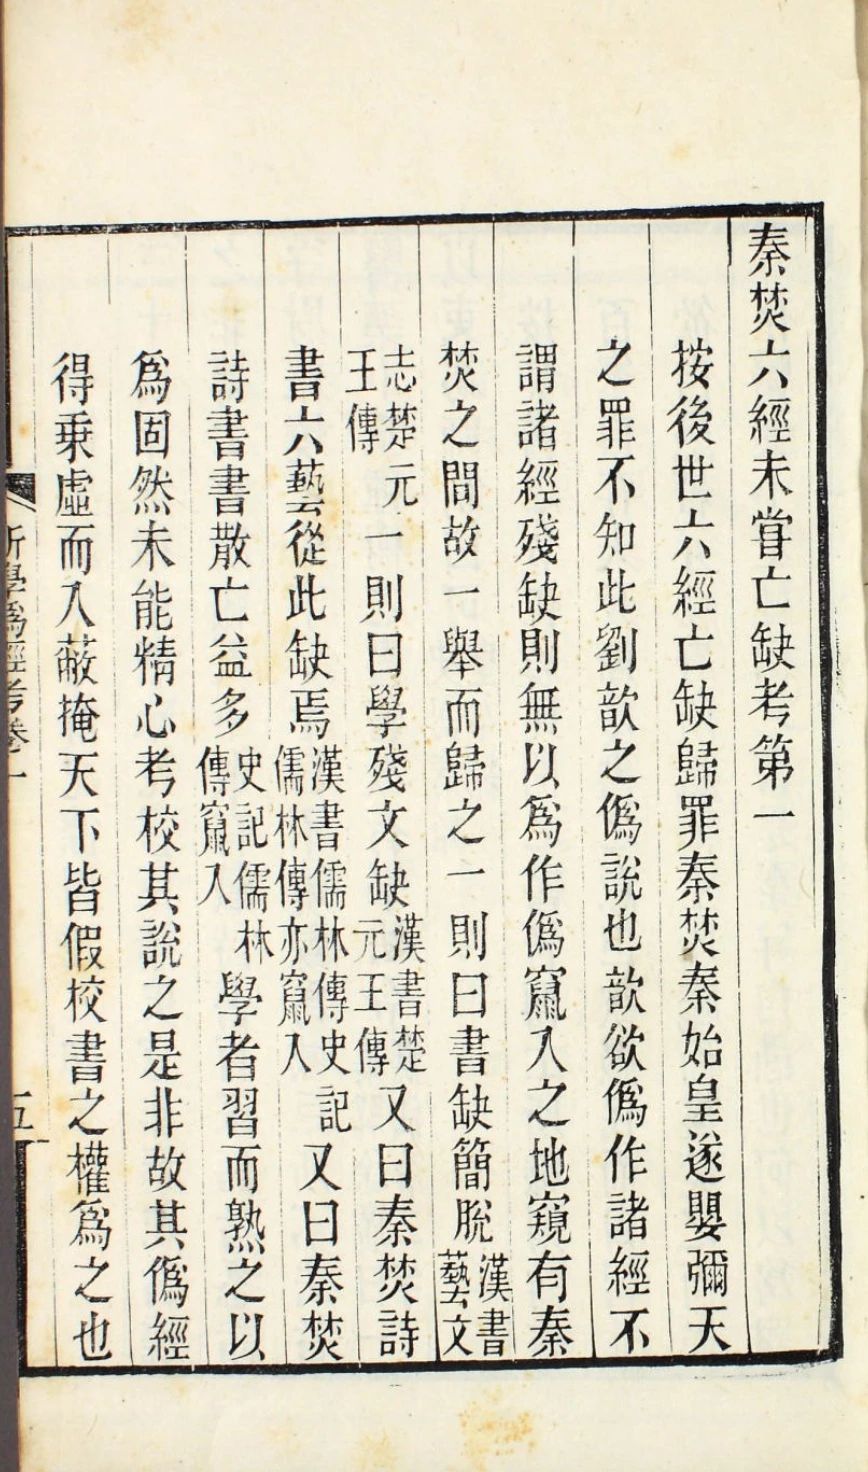 秦焚六經未嘗亡缺考第一
按後世六經亡缺歸罪秦焚秦始皇遂嬰彌天
之罪不知此劉歆之僞說也歆欲僞作諸經不
謂諸經殘缺則無以爲作僞竄入之地窺有秦
焚之間故一舉而歸之一則曰書缺簡脫漢書藝文
志楚元王傳一則曰學殘文缺漢書楚元王傳又曰秦焚詩
書六藝從此缺焉漢書儒林傳史記儒林傳亦竄入又曰秦焚
詩書書散亡益多史記儒林傳竄入學者習而熟之以
爲固然未能精心考校其說之是非故其僞經
得乘虛而入蔽掩天下皆假校書之權爲之也
新學僞經考卷一
五